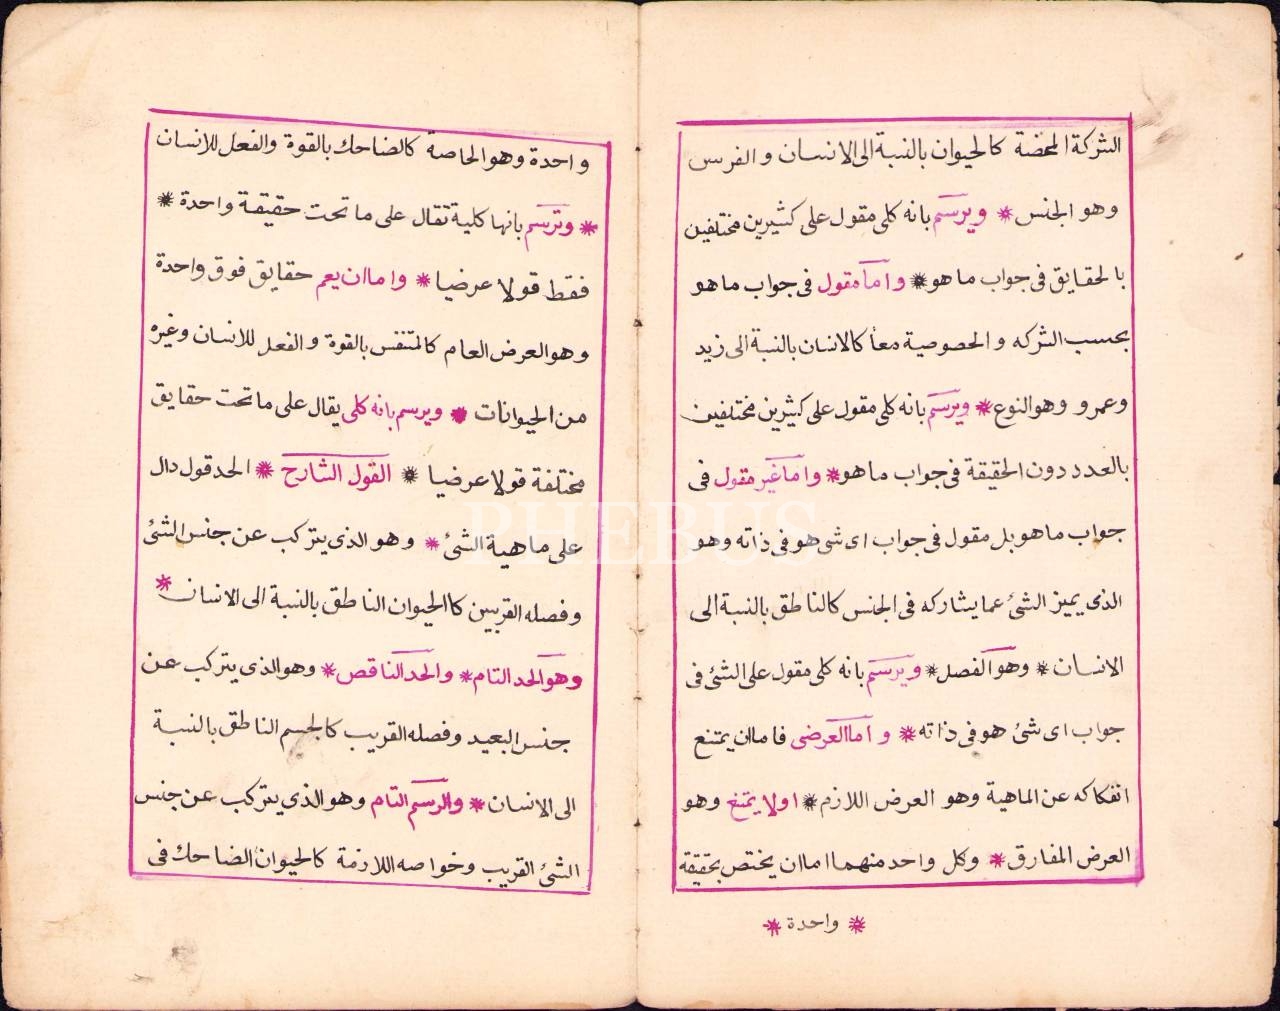 الشركة المحضة كالحيوان بالنسبة الى الانسان و الفرس
وهو الجنس * ويرسم بانه كلى مقول على كثيرين مختلفين
بالحقايق فى جواب ما هو * واما مقول فى جواب ما هو
بحسب الشركه و الخصوصية معا كالانسان بالنسبة الى زيد
وعمرو وهو النوع * ويرسم بانه كلى مقول على كثيرين مختلفين
بالعدد دون الحقيقة فى جواب ما هو * واما غير مقول فى
جواب ما هو بل مقول فى جواب اى شى هو فى ذاته وهو
الذى يميز الشئ عما يشاركه فى الجنس كالناطق بالنسبة الى
الانسان * وهو الفصل * ويرسم بانه كلى مقول على الشئ فى
جواب اى شئ هو فى ذاته * و اما العرضى فاما ان يمتنع
انفكاكه عن الماهية وهو العرض اللازم * اولا يمتنع وهو
العرض المفارق * وكل واحد منهما اما ان يختص بحقيقة
* واحدة *
واحدة وهو الخاصة كالضاحك بالقوة والفعل للانسان
* وترسم بانها كلية تقال على ما تحت حقيقة واحدة *
فقط قولا عرضيا * واما ان يعم حقايق فوق واحدة
وهو العرض العام كالمتنفس بالقوة و الفعل للانسان وغيره
من الحيوانات * ويرسم بانه كلى يقال على ما تحت حقايق
مختلفة قولا عرضيا * القول الشارح * الحد قول دال
على ماهية الشئ * وهو الذى يتركب عن جنس الشئ
وفصله القريبين كالحيوان الناطق بالنسبة الى الانسان *
وهو الحد التام * والحد الناقص * وهو الذى يتركب عن
جنس البعيد وفصله القريب كالجسم الناطق بالنسبة
الى الانسان * والرسم التام وهو الذى يتركب عن جنس
الشئ القريب وخواصه اللازمة كالحيوان الضاحك فى
PHEBUS